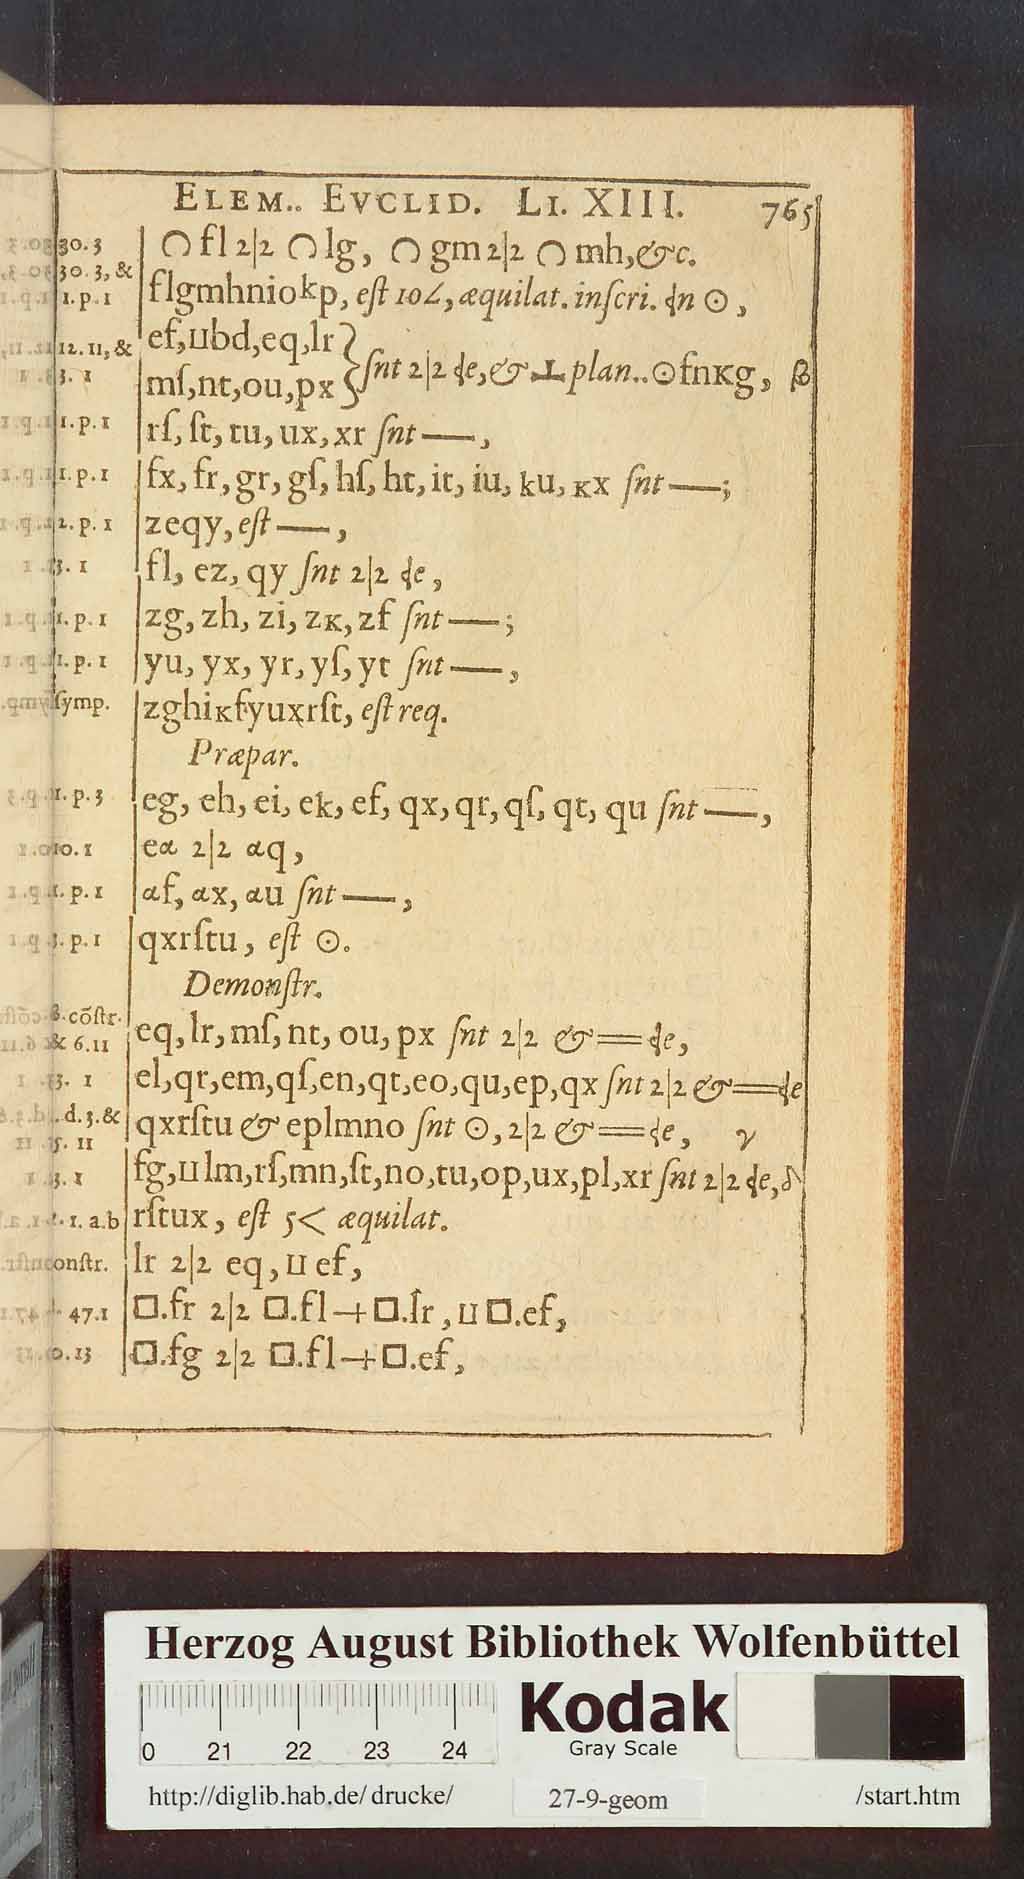 ELEM.. EVCLID. LI. XIII. 765
30.3 ∩ fl 2|2 ∩ lg, ∩ gm 2|2 ∩ mh, &c.
30.3, &
1. p. 1 flgmhniokp, eſt 10∠, æquilat. inſcri. in ⊙,
12.11, & ef, ⊔bd, eq, lr
3. 1 mſ, nt, ou, px } ſnt 2|2 de, & ⊥ plan.. ⊙ fnкg, β
1. p. 1 rſ, ſt, tu, ux, xr ſnt —,
1. p. 1 fx, fr, gr, gſ, hſ, ht, it, iu, ku, кx ſnt —;
2. p. 1 zeqy, eſt —,
3. 1 fl, ez, qy ſnt 2|2 de,
1. p. 1 zg, zh, zi, zк, zf ſnt —;
1. p. 1 yu, yx, yr, yſ, yt ſnt —,
ſymp. zghiкfyuxrſt, eſt req.
Præpar.
1. p. 3 eg, eh, ei, ek, ef, qx, qr, qſ, qt, qu ſnt —,
10. 1 eα 2|2 αq,
1. p. 1 αf, αx, αu ſnt —,
3. p. 1 qxrſtu, eſt ⊙.
Demonſtr.
β. cõſtr. eq, lr, mſ, nt, ou, px ſnt 2|2 & = de,
& 6.11
33. 1 el, qr, em, qſ, en, qt, eo, qu, ep, qx ſnt 2|2 & = de
d. 3. & qxrſtu & eplmno ſnt ⊙, 2|2 & = de, γ
15. 11
3. 1 fg, ⊔lm, rſ, mn, ſt, no, tu, op, ux, pl, xr ſnt 2|2 de, δ
1. a. b rſtux, eſt 5< æquilat.
conſtr. lr 2|2 eq, ⊔ ef,
47.1 □.fr 2|2 □.fl + □.lr, ⊔ □.ef,
10.13 □.fg 2|2 □.fl + □.ef,
Herzog August Bibliothek Wolfenbüttel
0 21 22 23 24
Kodak
Gray Scale
http://diglib.hab.de/ drucke/ 27-9-geom /start.htm